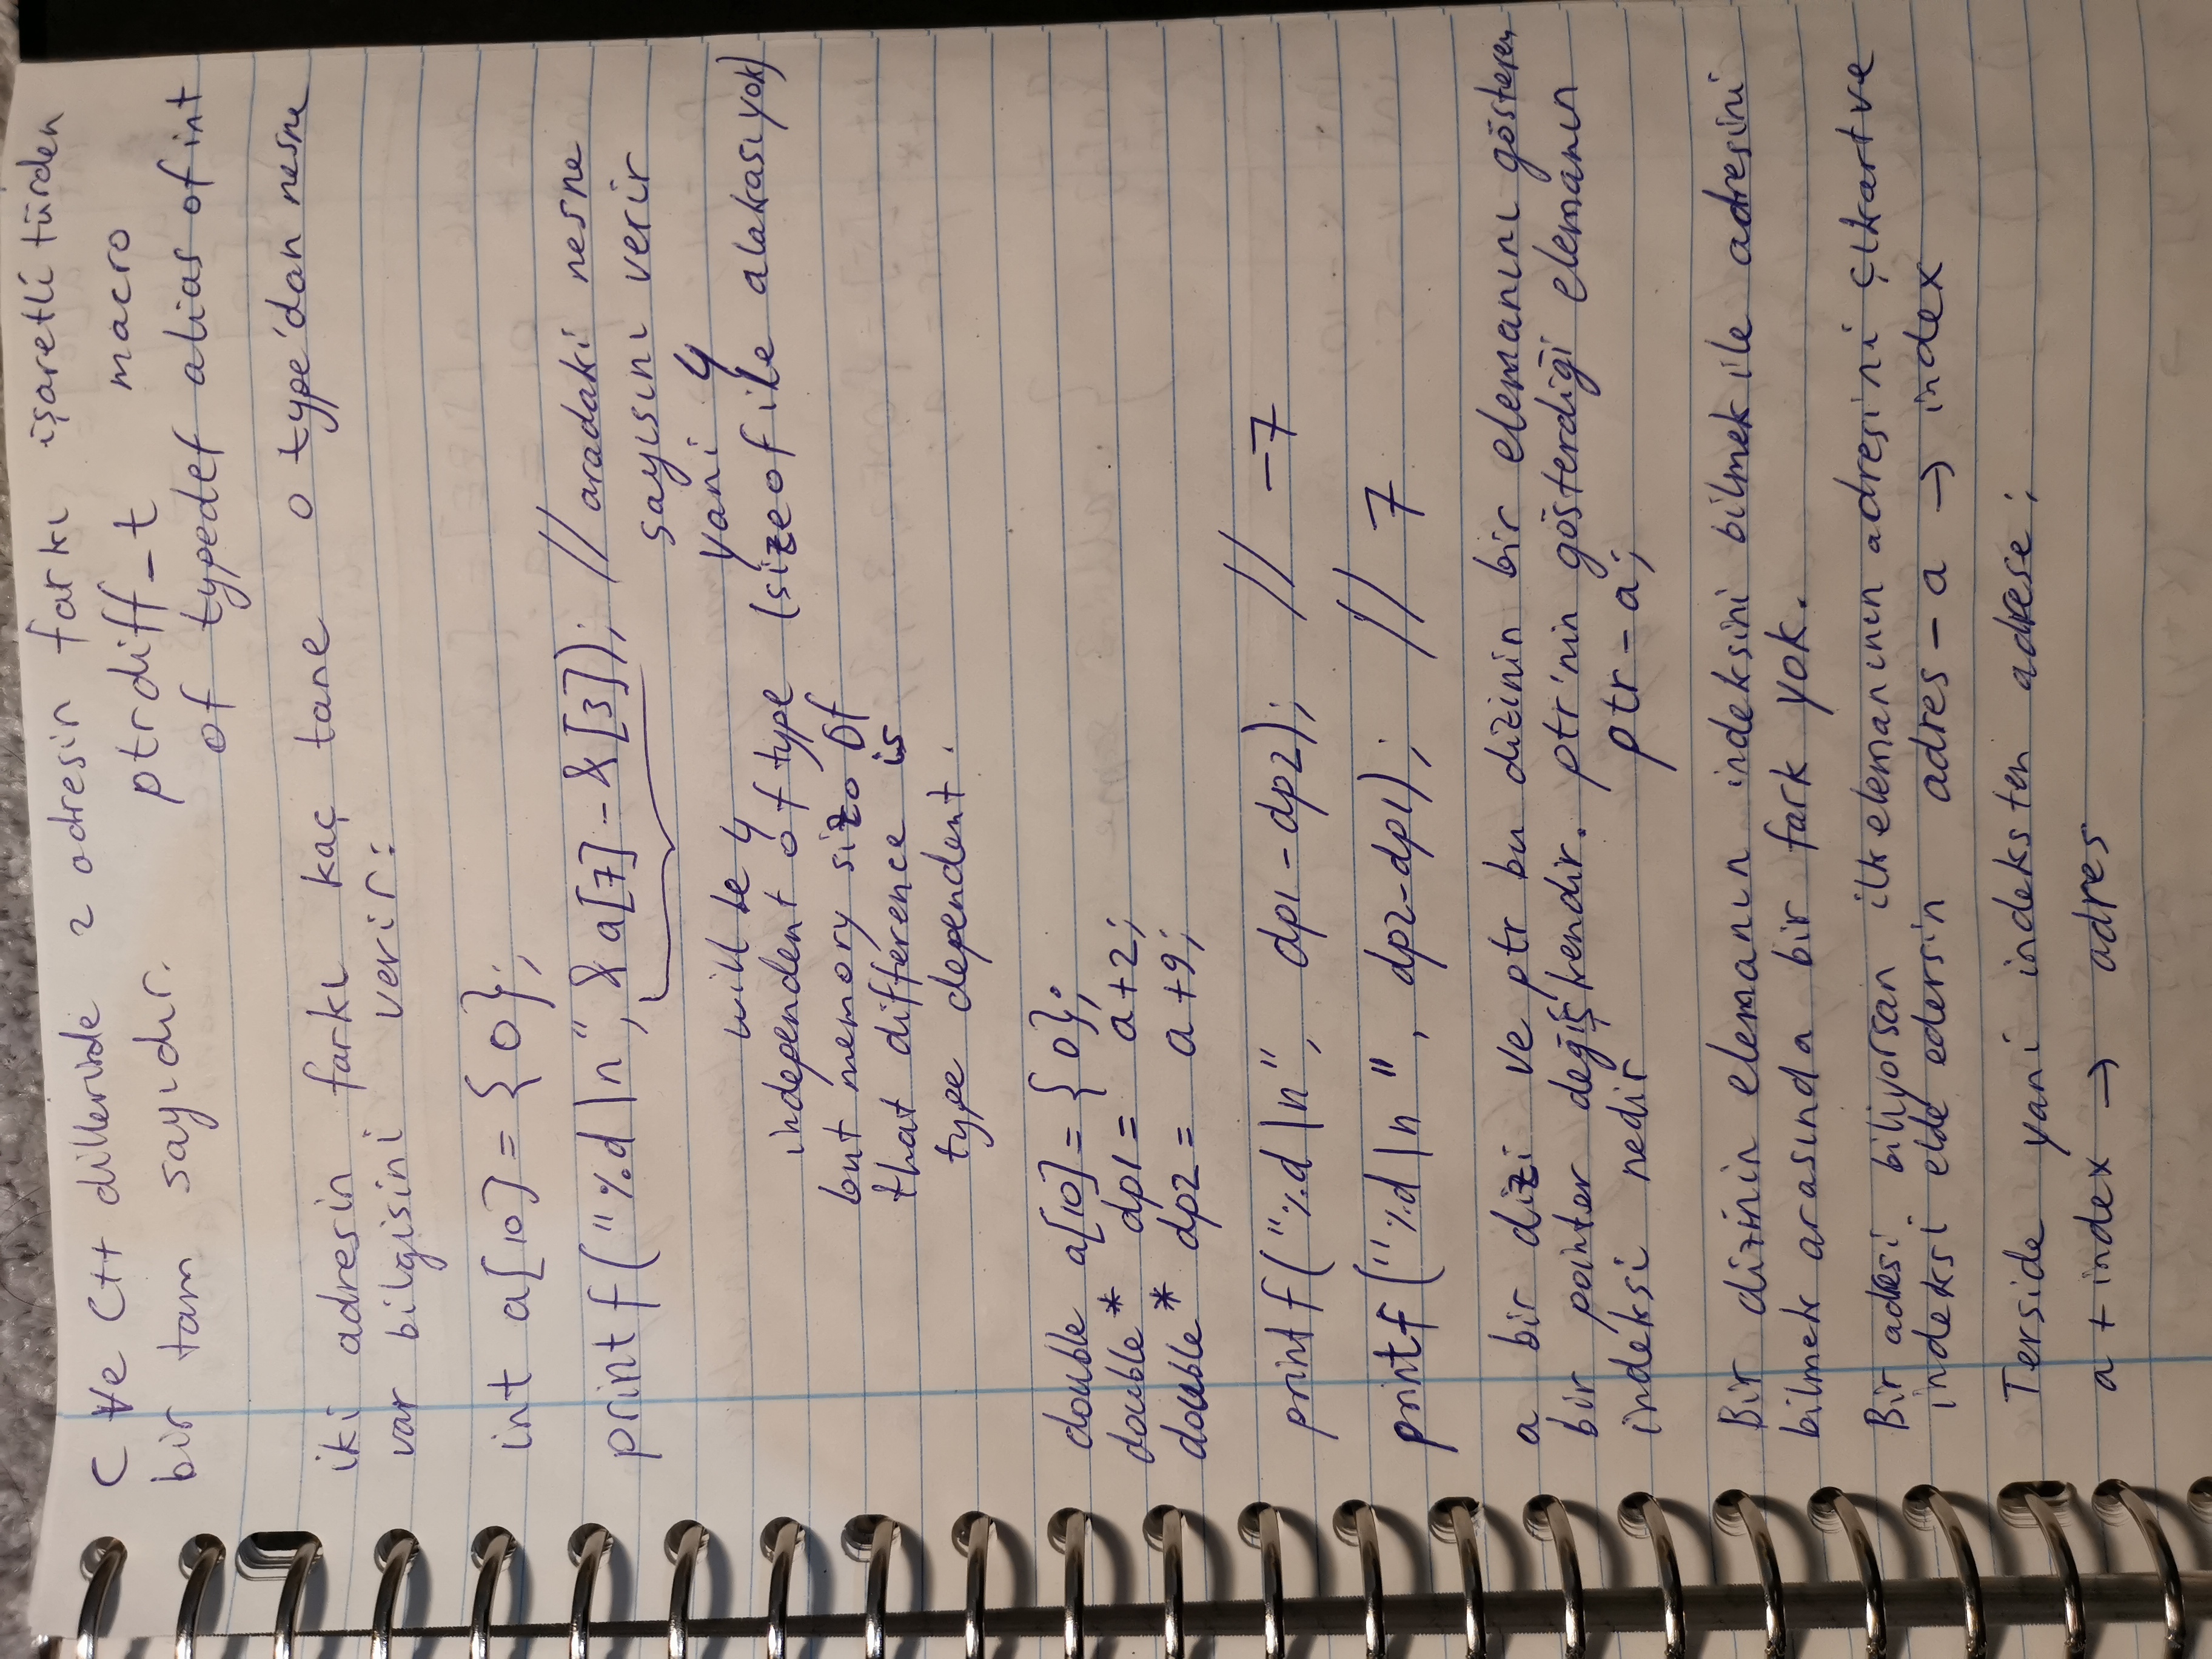 C ve C++ dillerinde 2 adresin farkı işaretli türden
bir tam sayıdır. ptrdiff_t macro
of typedef alias of int
iki adresin farkı kaç tane o type'dan nesne
var bilgisini verir:
int a[10] = {0};
printf("%d\n", &a[7]-&[3]); // aradaki nesne
sayısını verir
yani 4
(sizeof ile alakası yok)
will be 4
independent of type
but memory size of
that difference is
type dependent.
double a[10] = {0};
double* dp1 = a+2;
double* dp2 = a+9;
printf("%d\n", dp1-dp2); // -7
printf("%d\n", dp2-dp1); // 7
a bir dizi ve ptr bu dizinin bir elemanını gösteren
bir pointer değişkendir. ptr'nin gösterdiği elemanın
indeksi nedir ptr-a;
Bir dizinin elemanın indeksini bilmek ile adresini
bilmek arasında bir fark yok.
Bir adresi biliyorsan ilk elemanının adresini çıkart ve
indeksi elde edersin adres - a → index
Terside yani indeksten adrese;
a + index → adres